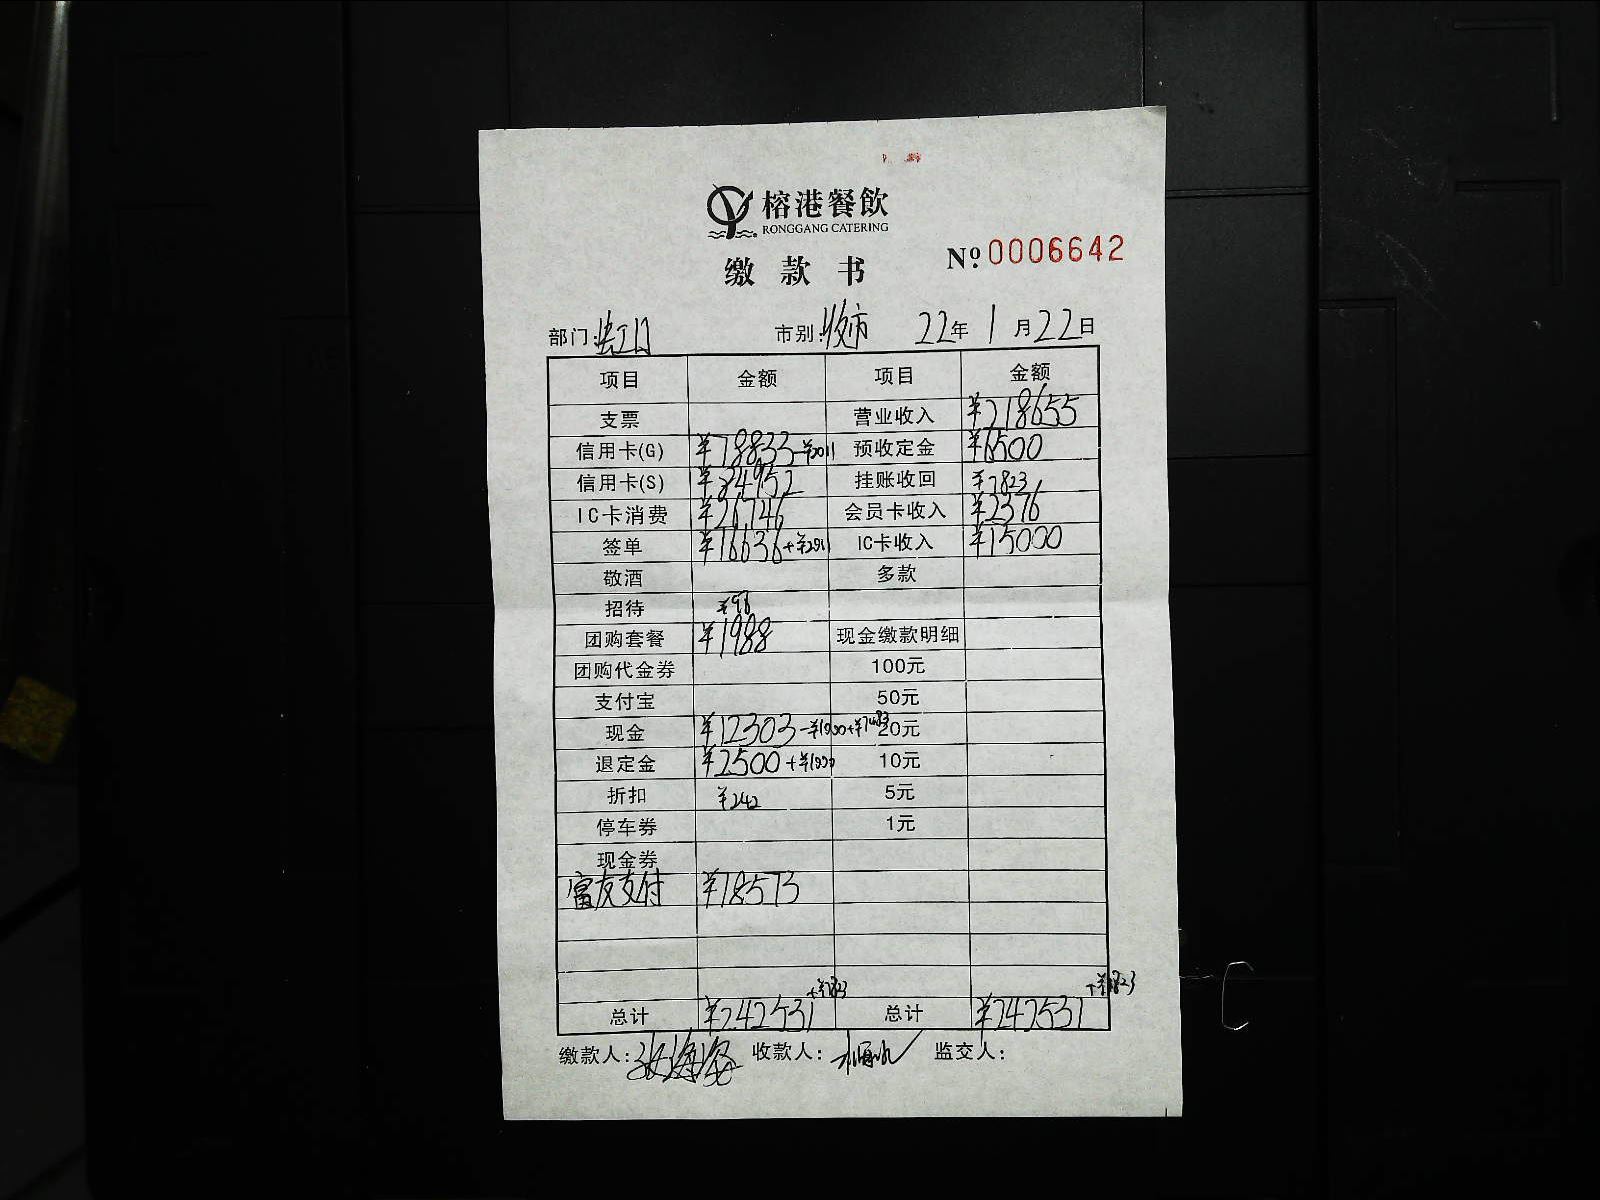 榕港餐飲
RONGGANG CATERING
缴款书
№ 0006642
部门:虹口 市别:收市 22年1月22日
项目 金额 项目 金额
支票 营业收入 ¥218655
信用卡(G) ¥78833 预收定金 ¥6500
信用卡(S) ¥84952 挂账收回 ¥7823
IC卡消费 ¥26746 会员卡收入 ¥2376
签单 ¥16636 IC卡收入 ¥15000
敬酒 多款
招待 ¥98
团购套餐 ¥1988 现金缴款明细
团购代金券 100元
支付宝 50元
现金 ¥12303-¥1000+¥7483 20元
退定金 ¥2500+¥1000 10元
折扣 ¥242 5元
停车券 1元
现金券
富友支付 ¥18573
+¥7823 +¥7823
总计 ¥242531 总计 ¥242531
缴款人: 收款人: 监交人: